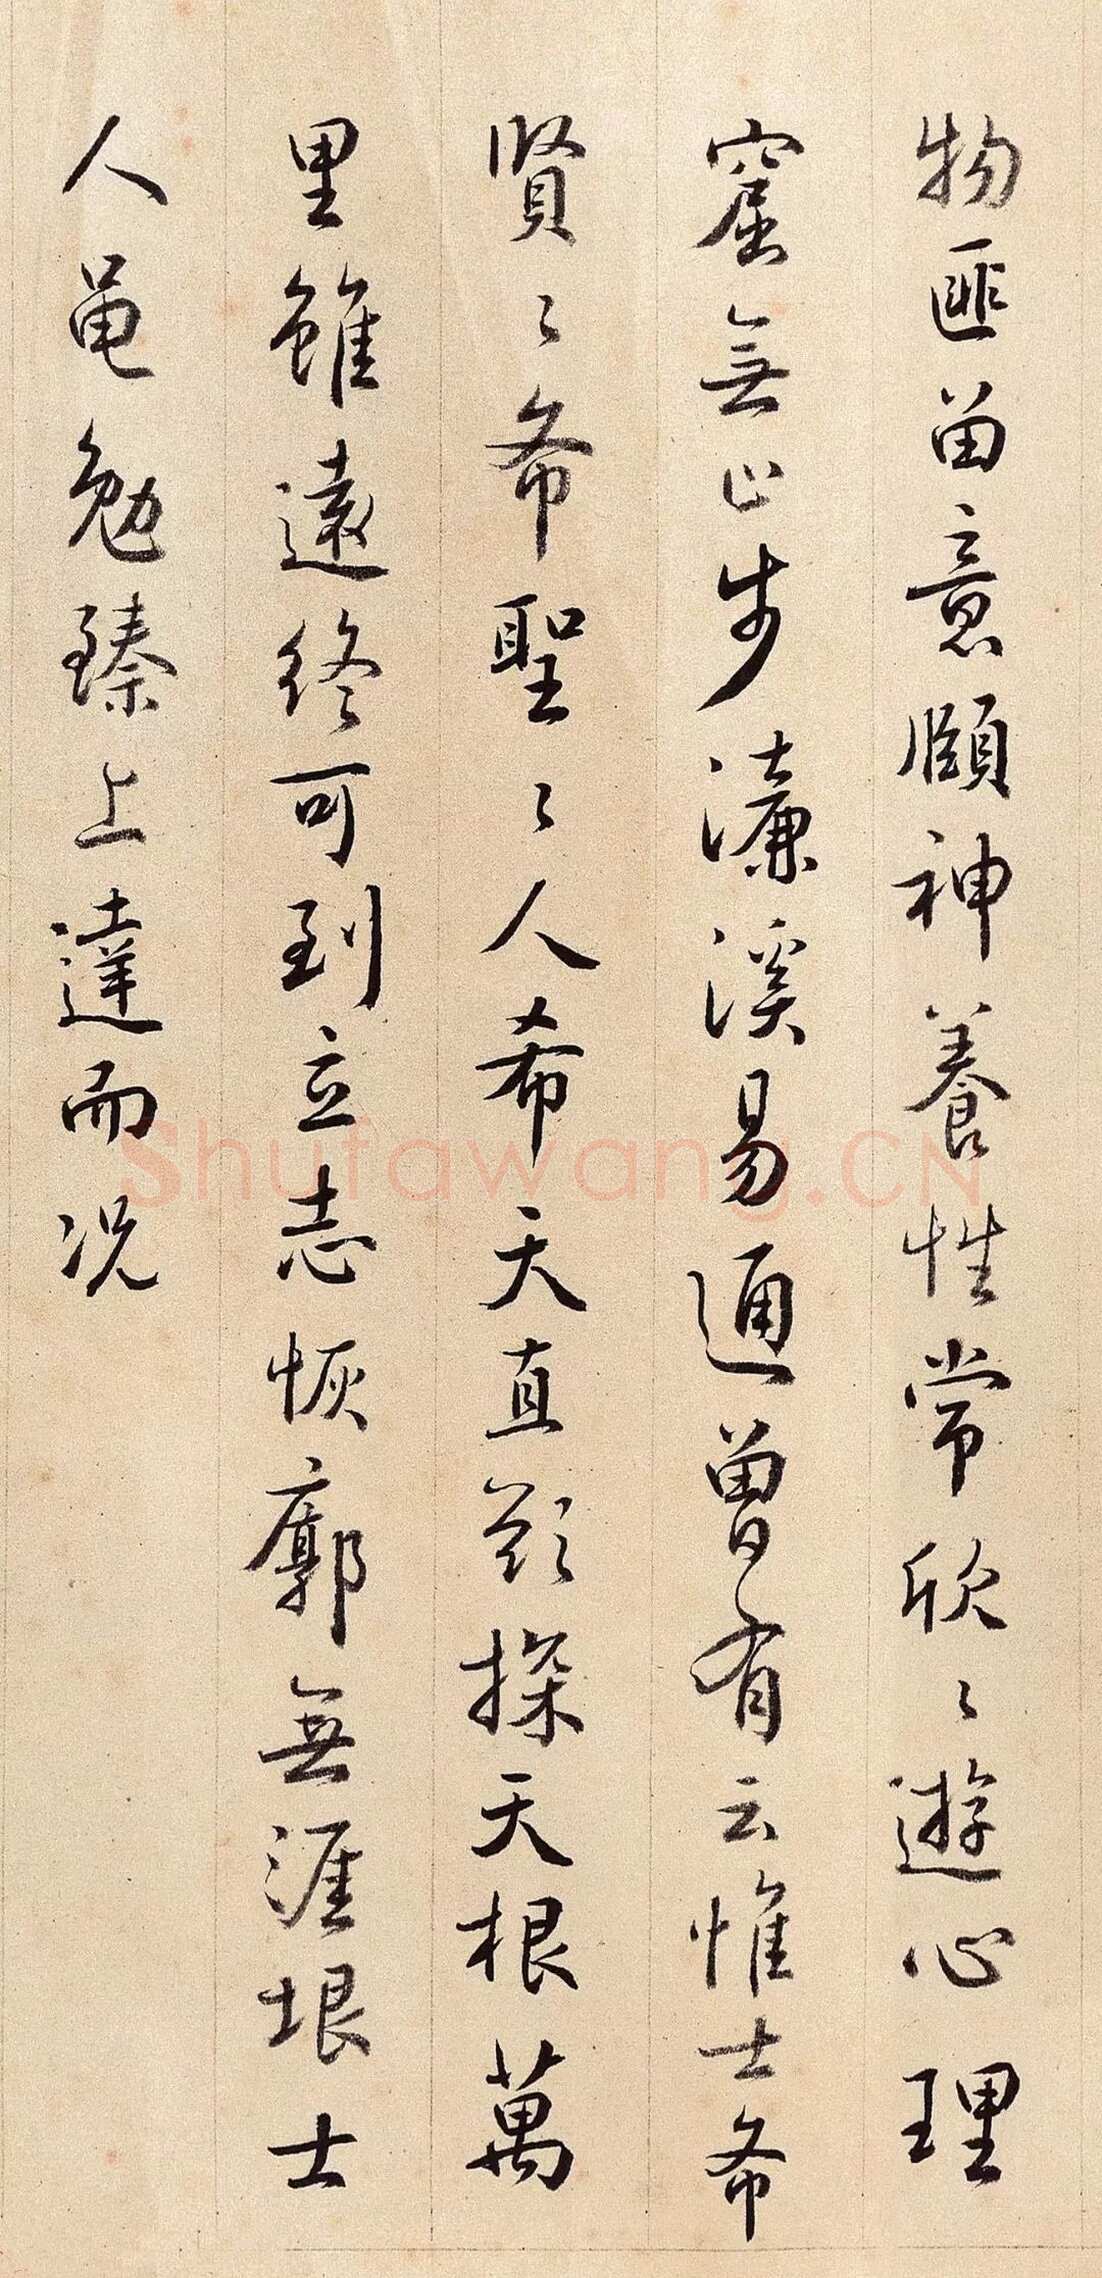 物匪留意頤神養性常欣〻遊心理
窟無止步濂溪易通曽有云惟士希
賢〻希聖〻人希天直欲探天根萬
里雖遠終可到立志恢廓無涯垠士
人黽勉臻上達而况
Shufawang.CN